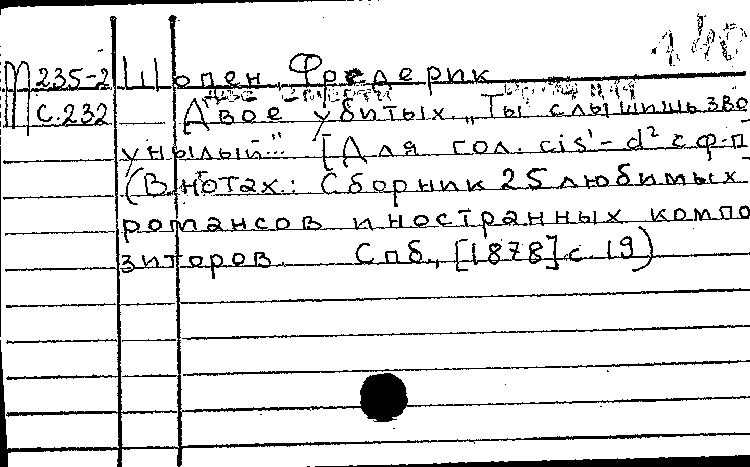 140
М 235-2 Шопен Фредерик
С.232 Двое убитых. „Ты слышишь зво
унылый..." [Для гол. cis¹-d² с ф-п
(В нотах: Сборник 25 любимых
романсов иностранных компо
зиторов. Спб., [1878] с. 19)